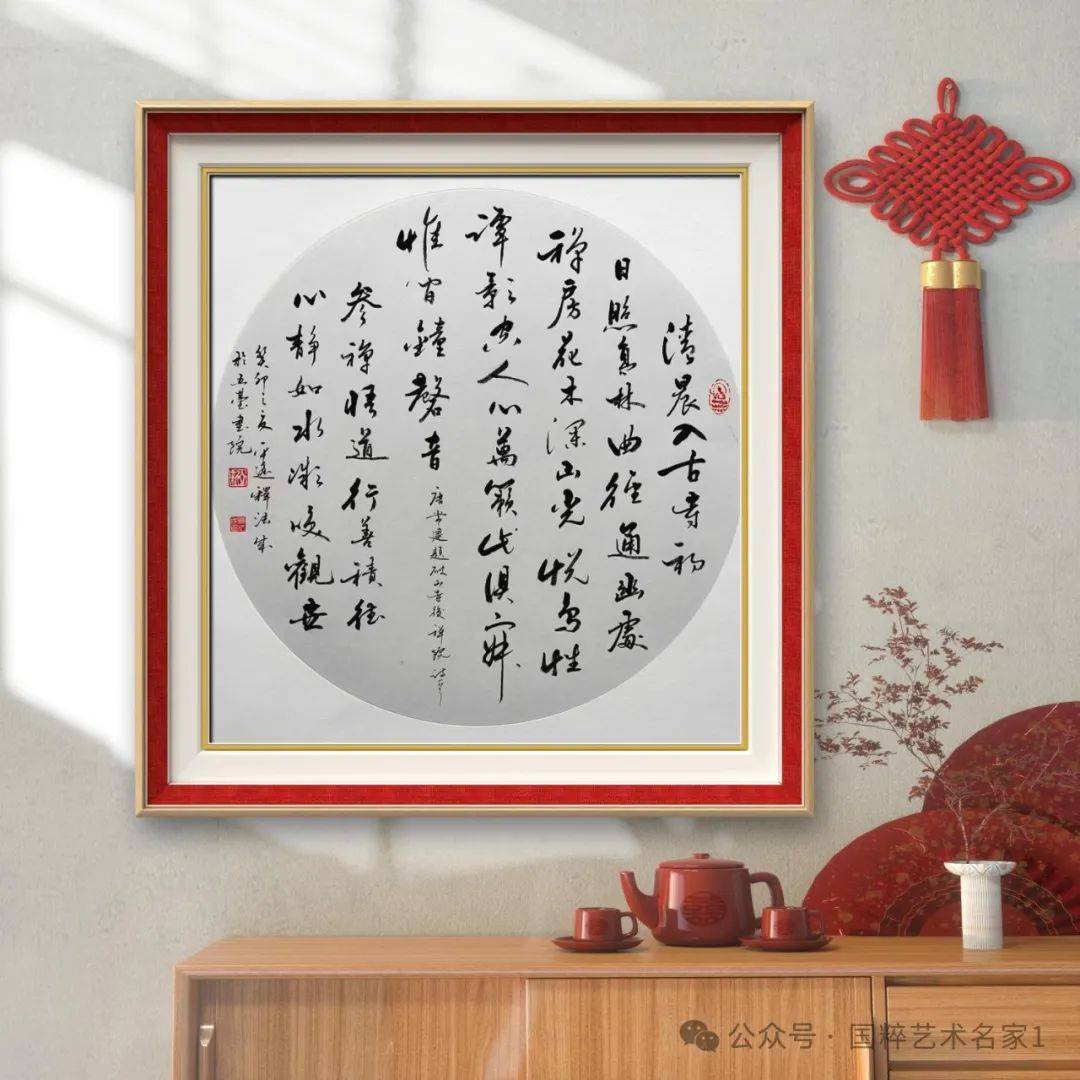 清晨入古寺初
日照高林曲徑通幽處
禅房花木深山光悦鸟性
潭影空人心萬籁此俱寂
惟闻鐘磬音
唐常建题破山寺後禅院诗
参禅悟道行善積德
心静如水凝觀世
癸卯之夏平遥釋法成
於五臺書院
公众号·国粹艺术名家1